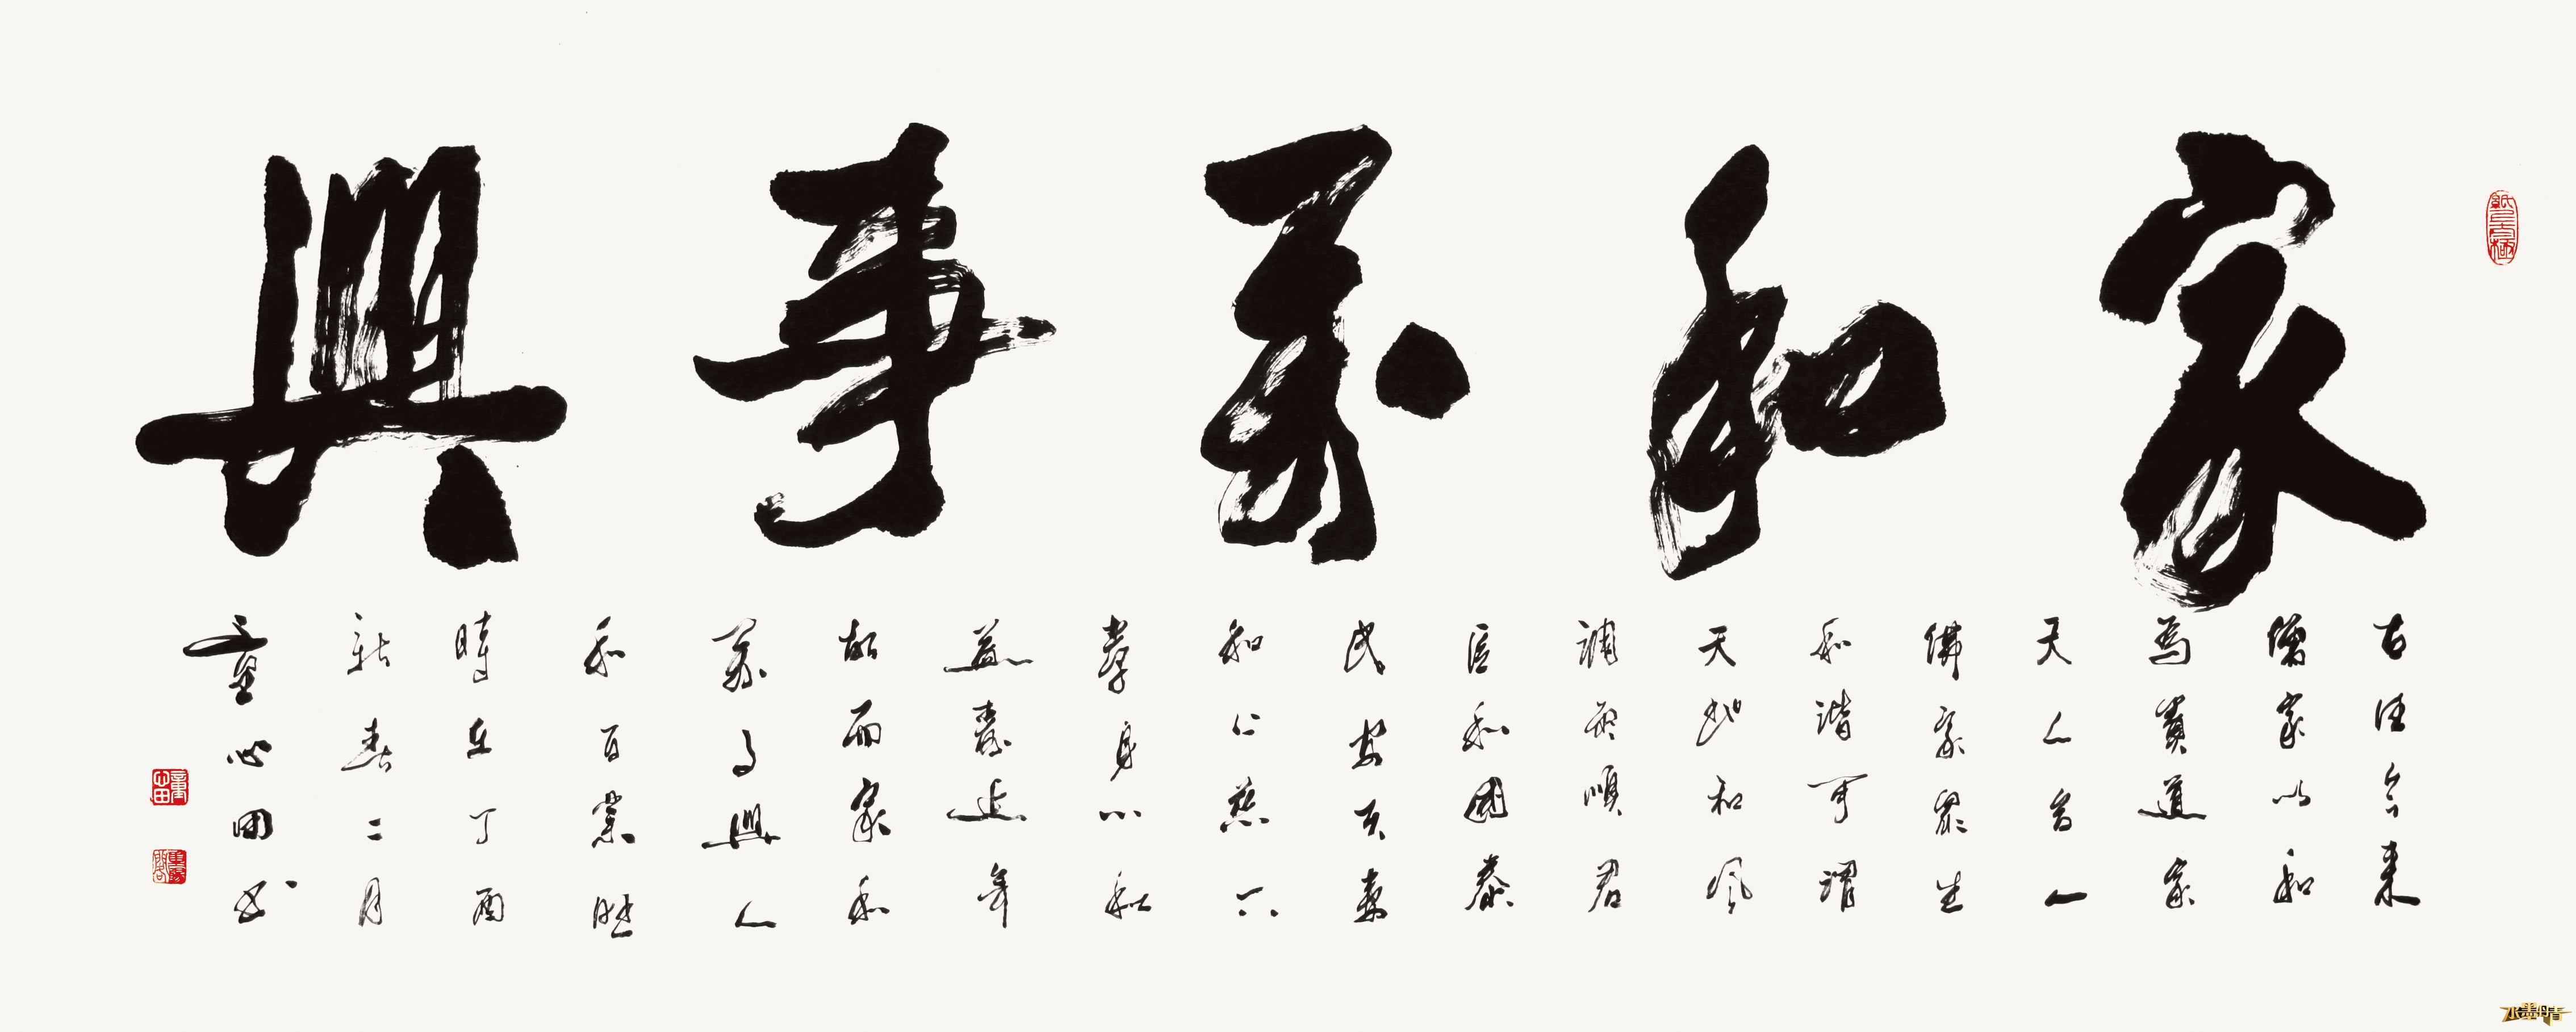 家和萬事興
古往今來
儒家以和
為貴道家
天人合一
佛家眾生
和諧可謂
天地和風
調雨順君
臣和國泰
民安夫妻
和上慈下
孝身心和
益壽延年
故而家和
萬事興人
和百業旺
時在丁酉
新春二月
童心田書
水墨丹青